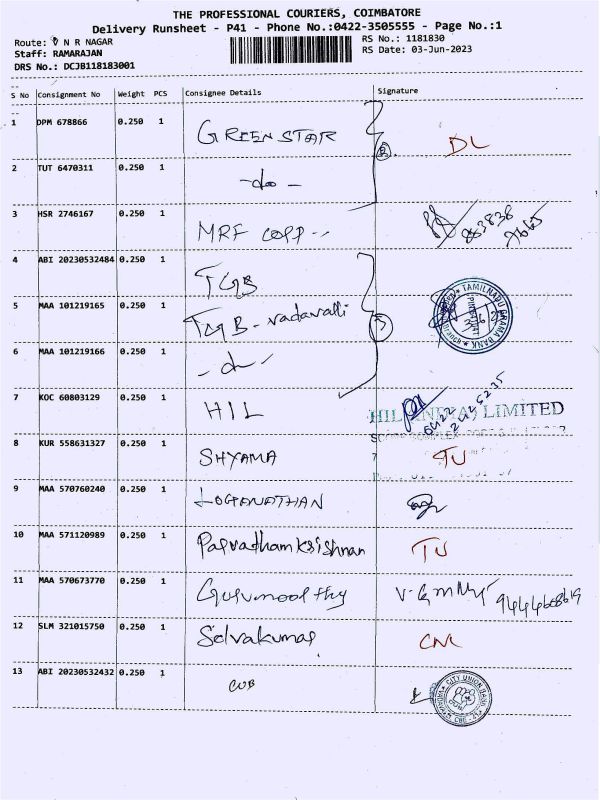 THE PROFESSIONAL COURIERS, COIMBATORE
Delivery Runsheet - P41 - Phone No.:0422-3505555 - Page No.:1
Route: V N R NAGAR
Staff: RAMARAJAN
DRS No.: DCJB118183001
RS No.: 1181830
RS Date: 03-Jun-2023
S No Consignment No Weight PCS Consignee Details Signature
1 DPM 678866 0.250 1 GREEN STAR DL
2 TUT 6470311 0.250 1 -do-
3 HSR 2746167 0.250 1 MRF COPP
4 ABI 20230532484 0.250 1 TGB
TAMILNADU GRAMA BANK
5 MAA 101219165 0.250 1 TGB - Vadavalli
6 MAA 101219166 0.250 1 -do-
7 KOC 60803129 0.250 1 HIL
HIL LIMITED
8 KUR 558631327 0.250 1 SHYAMA TU
9 MAA 570760240 0.250 1 LOGANATHAN
10 MAA 571120989 0.250 1 Parvatham krishnan TU
11 MAA 570673770 0.250 1 Gurumoorthy 9444608619
12 SLM 321015750 0.250 1 Selvakumar CNL
13 ABI 20230532432 0.250 1 CUB
CITY UNION BANK